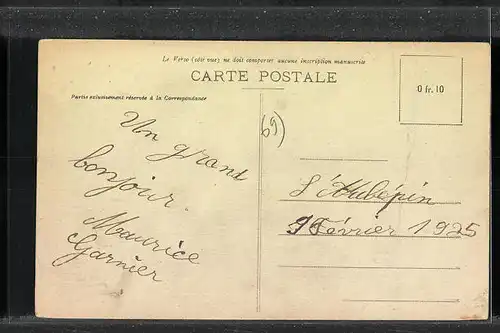 Le Verso (côté vue) ne doit comporter aucune inscription manuscrite
CARTE POSTALE
Partie exclusivement réservée à la Correspondance
0 fr. 10
(69)
Un grand
bonjour.
Maurice
Garnier
L'Aubépin
9 Février 1925